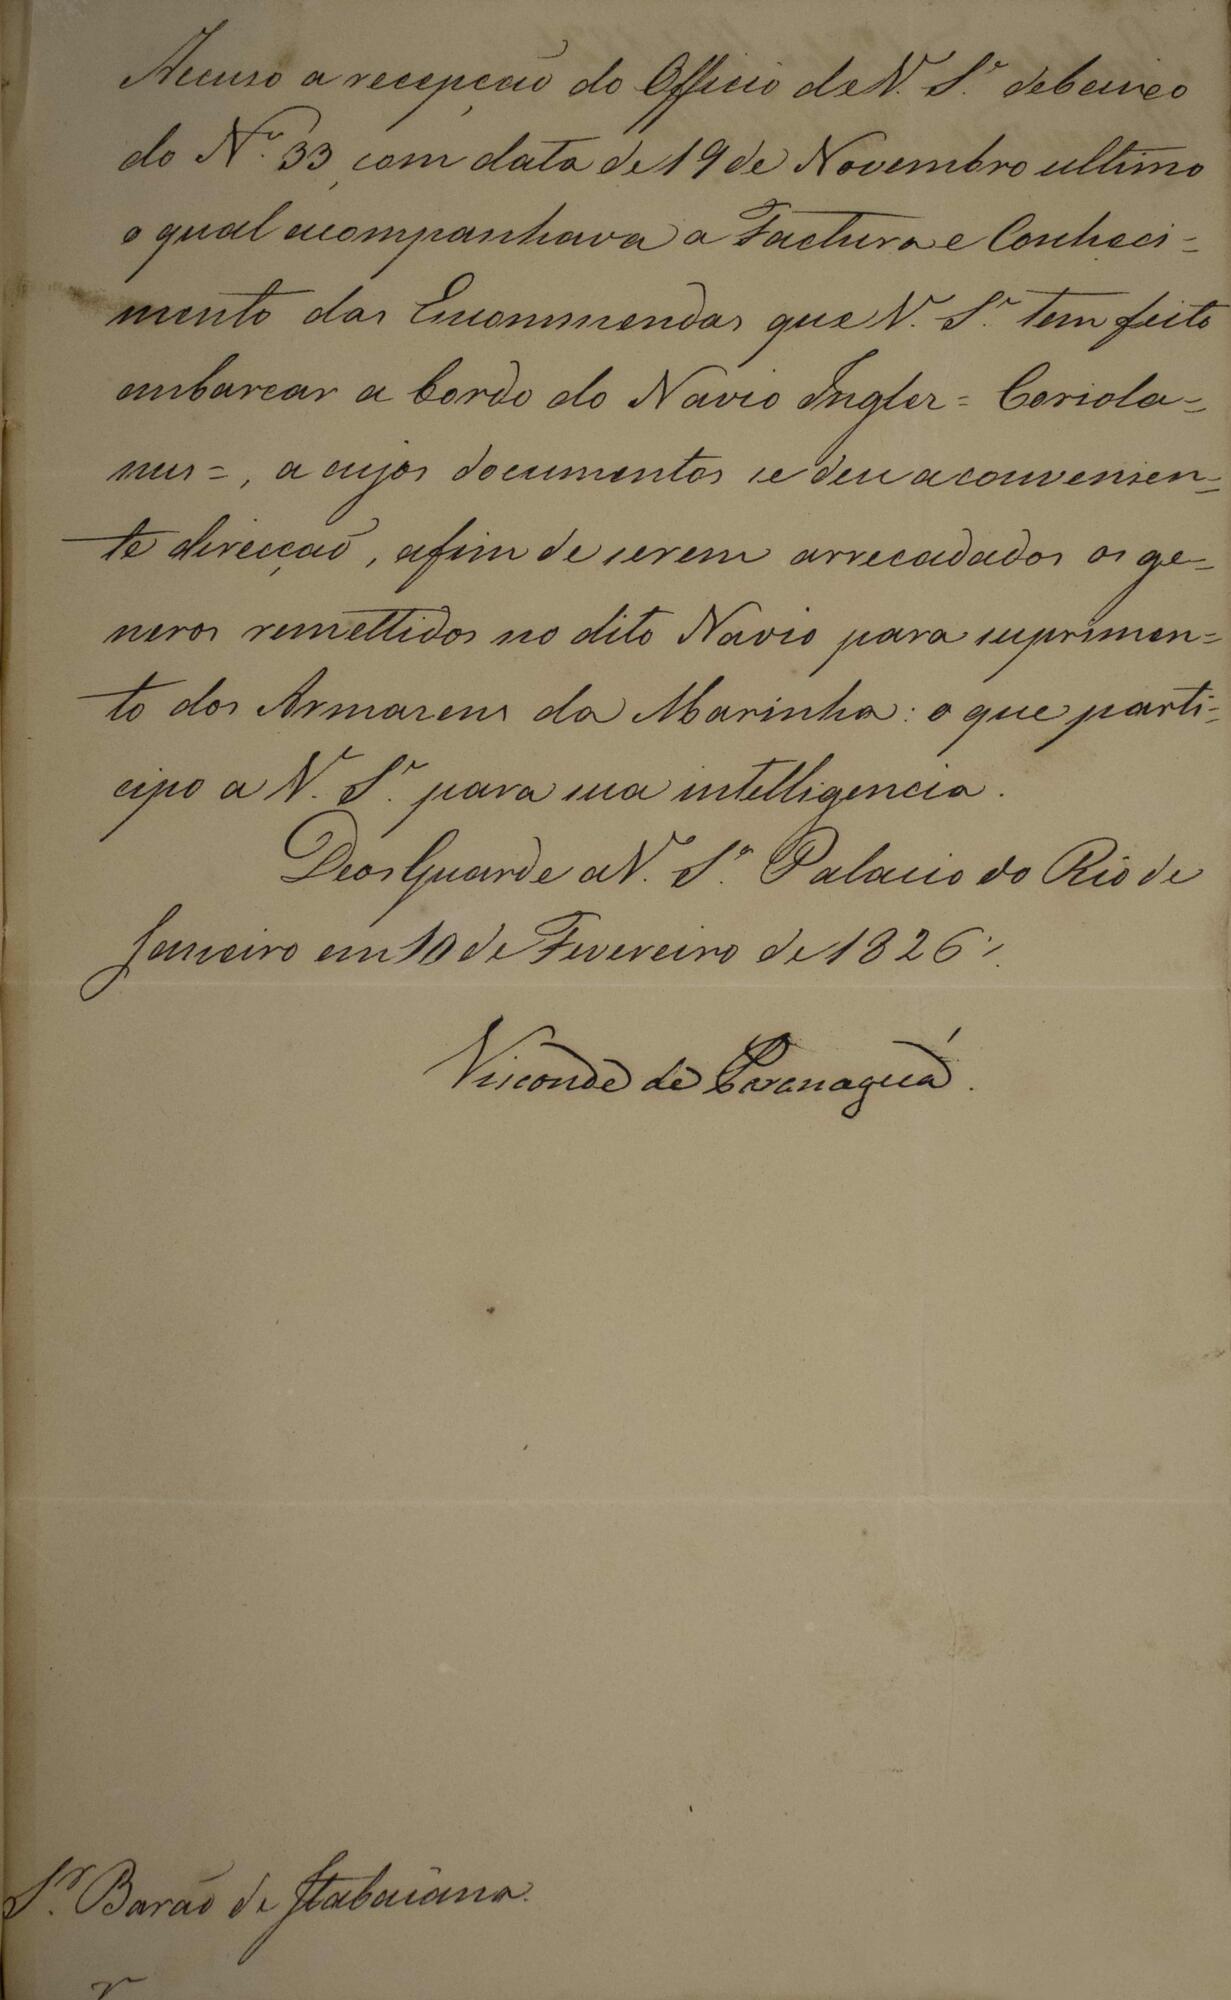 Accuso a recepção do Officio de V. S.ª debaixo
do N.º 33, com data de 19 de Novembro ultimo
o qual acompanhava a Factura e Conheci=
mento das Encommendas que V. S.ª tem feito
embarcar a bordo do Navio Inglez = Coriola=
nus =, a cujos documentos se deu a convenien=
te direcção, afim de serem arrecadados os ge=
neros remettidos no dito Navio para suprimen=
to dos Armazens da Marinha: o que parti=
cipo a V. S.ª para sua intelligencia.
Deos Guarde a V. S.ª Palacio do Rio de
Janeiro em 10 de Fevereiro de 1826
Visconde de Paranaguá.
Sr. Barão de Itabaiana.